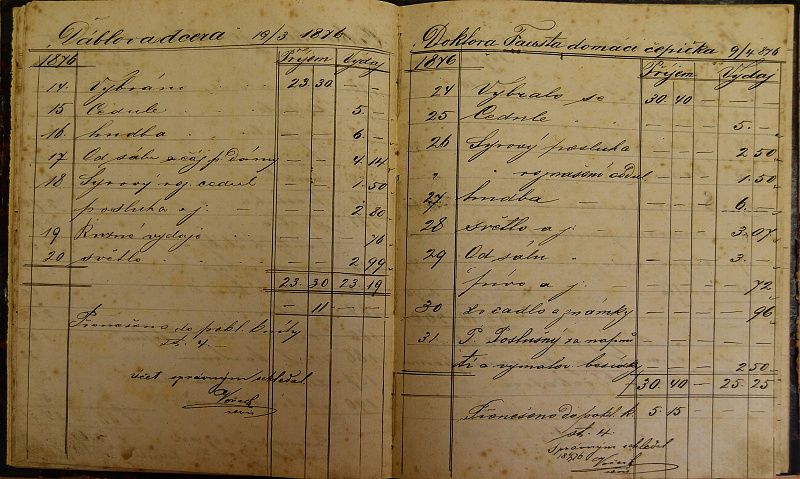 Ďáblova dcera 19/3 1876
1876 Příjem Výdaj
14. Vybráno 23 30 — —
15 Cedule — — 5 —
16 hudba — — 6 —
17 Od sálu a čaj p. dámy — — 4 14
18 Syrový roz. cedul — — 1 50
posluha a j. — — 2 80
19 Různé výdaje — — 76
20 světlo — — 2 99
23 30 23 19
— 11 — —
Přenešeno do pokl. knihy
st. 4.
účet správným shledal
Doktora Fausta domácí čepička 9/4 876
1876 Příjem Výdaj
24 Vybralo se 30 40 — — —
25 Cedule — — 5 —
26 Syrový posluha — — 2 50
" " roznášení cedul — — 1 50
27 hudba — — 6 —
28 světlo a j. — — 3 07
29 Od sálu — — 3 —
pivo a j. — — 72
30 zrcadlo a známky — — 96
31. P. Poslušný za
a vymalov. — — 2 50
30 40 — 25 25
Přenešeno do pokl. k. 5 15 — — —
st. 4.
Správným shledal